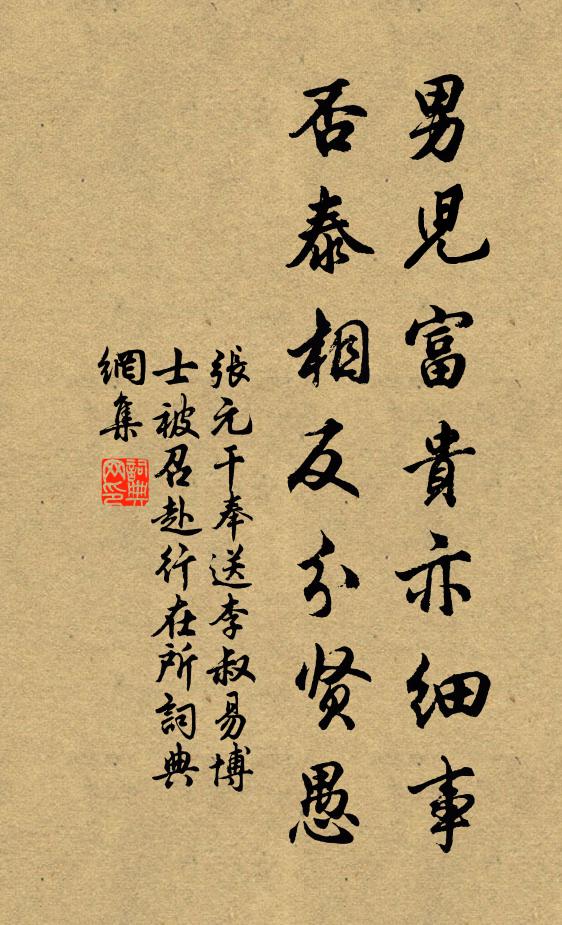 男児富貴亦细事
否泰相反分贤愚
張元干奉送李叔易博
士被召赴行在所詞典
網集
詞典
网印